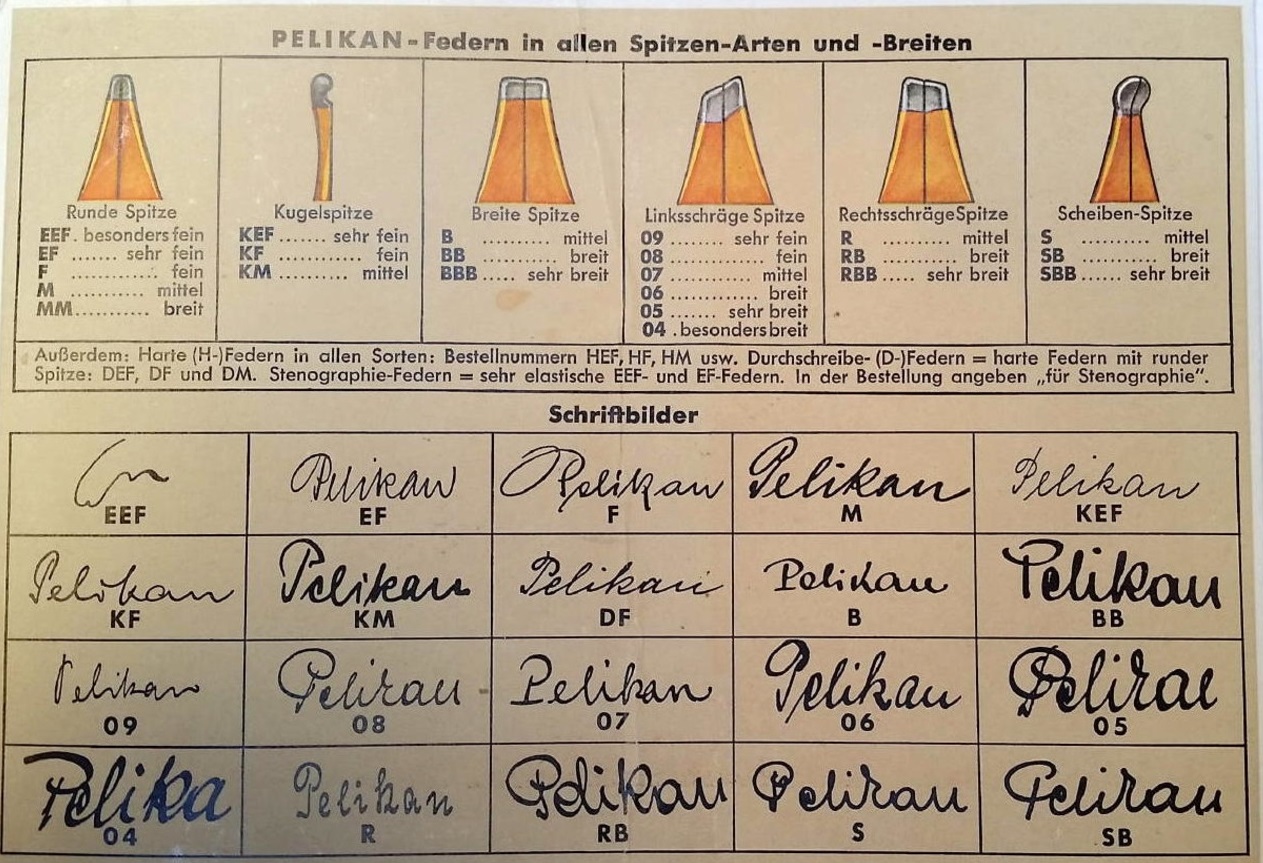 PELIKAN-Federn in allen Spitzen-Arten und -Breiten
Runde Spitze
EEF. besonders fein
EF ....... sehr fein
F ........... fein
M ........... mittel
MM........... breit
Kugelspitze
KEF ....... sehr fein
KF ............ fein
KM .......... mittel
Breite Spitze
B .......... mittel
BB ........... breit
BBB ..... sehr breit
Linksschräge Spitze
09 ........ sehr fein
08 ............. fein
07 ........... mittel
06 ............. breit
05 ....... sehr breit
04 . besonders breit
Rechtsschräge Spitze
R ........... mittel
RB ........... breit
RBB ..... sehr breit
Scheiben-Spitze
S .......... mittel
SB ........... breit
SBB .... sehr breit
Außerdem: Harte (H-)Federn in allen Sorten: Bestellnummern HEF, HF, HM usw. Durchschreibe- (D-)Federn = harte Federn mit runder
Spitze: DEF, DF und DM. Stenographie-Federn = sehr elastische EEF- und EF-Federn. In der Bestellung angeben „für Stenographie".
Schriftbilder
EEF
Pelikan
EF
Pelikan
F
Pelikan
M
Pelikan
KEF
Pelikan
KF
Pelikan
KM
Pelikan
DF
Pelikan
B
Pelikan
BB
Pelikan
09
Pelikan
08
Pelikan
07
Pelikan
06
Pelika
05
Pelika
04
Pelikan
R
Pelikan
RB
Pelikan
S
Pelikan
SB